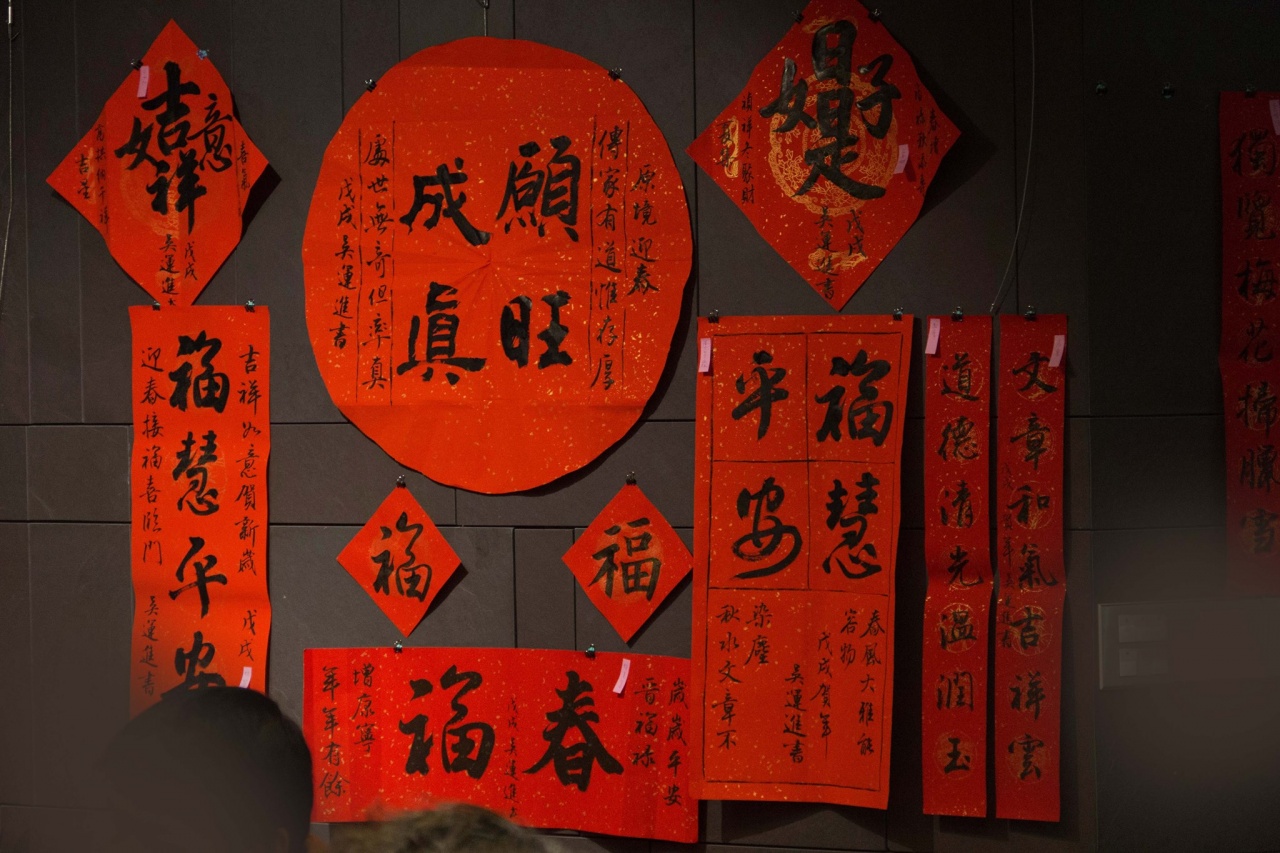 吉祥
如意
戊戌
吳運進
原境迎春
傳家有道惟存厚
願旺
成真
處世無奇但率真
戊戌吳運進書
日日是好
戊戌
吳運進書
吉祥如意賀新歲
戊戌
福慧平安
迎春接福喜臨門
吳運進書
福
福
歲歲平安
晉福祿
春
戊戌吳運進
福
增康寧
年年有餘
福慧
平安
春風大雅能
容物
戊戌賀年
吳運進書
染塵
秋水文章不
文章和氣吉祥雲
道德清光溫潤玉
獨覽梅花掃臘雪